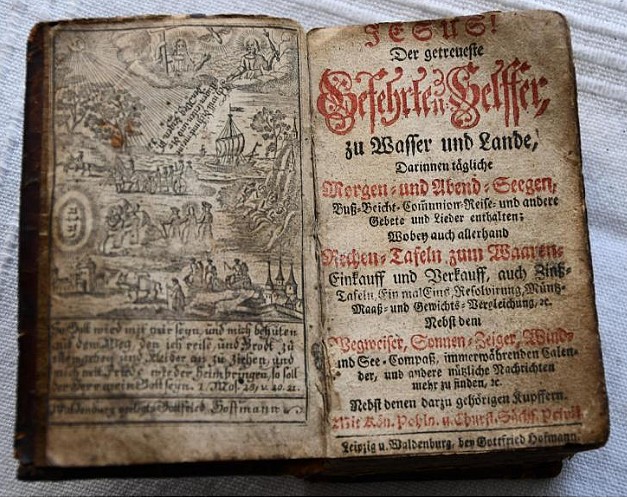 So Gott wird mit mir seyn, und mich behüten
auf dem Weg, den ich reise, und Brodt zu
essen geben und Kleider an zu ziehen, und
mich mit Friede wieder heim bringen, so soll
der Herr mein Gott seyn. 1. Mos. 28, v. 20. 21.
Waldenburg verlegts Gottfried Hoffmann
JESUS!
Der getreueste
Gefehrten-Helffer,
zu Wasser und Lande,
Darinnen tägliche
Morgen- und Abend-Seegen,
Buß-Beicht-Com̃union-Reise- und andere
Gebete und Lieder enthalten;
Wobey auch allerhand
Rechen-Tafeln zum Waaren-
Einkauff und Verkauff, auch Zinß-
Tafeln, Ein mal Eins, Resolvirung, Müntz-
Maaß- und Gewichts-Vergleichung, ꝛc.
Nebst dem
Wegweiser, Sonnen-Zeiger, Wind-
und See-Compaß, immerwährenden Calen-
der, und andere nützliche Nachrichten
mehr zu finden, ꝛc.
Nebst denen darzu gehörigen Kupffern.
Mit Kön. Pohln. u. Churfl. Sächs. Privil.
Leipzig u. Waldenburg, bey Gottfried Hofmann.